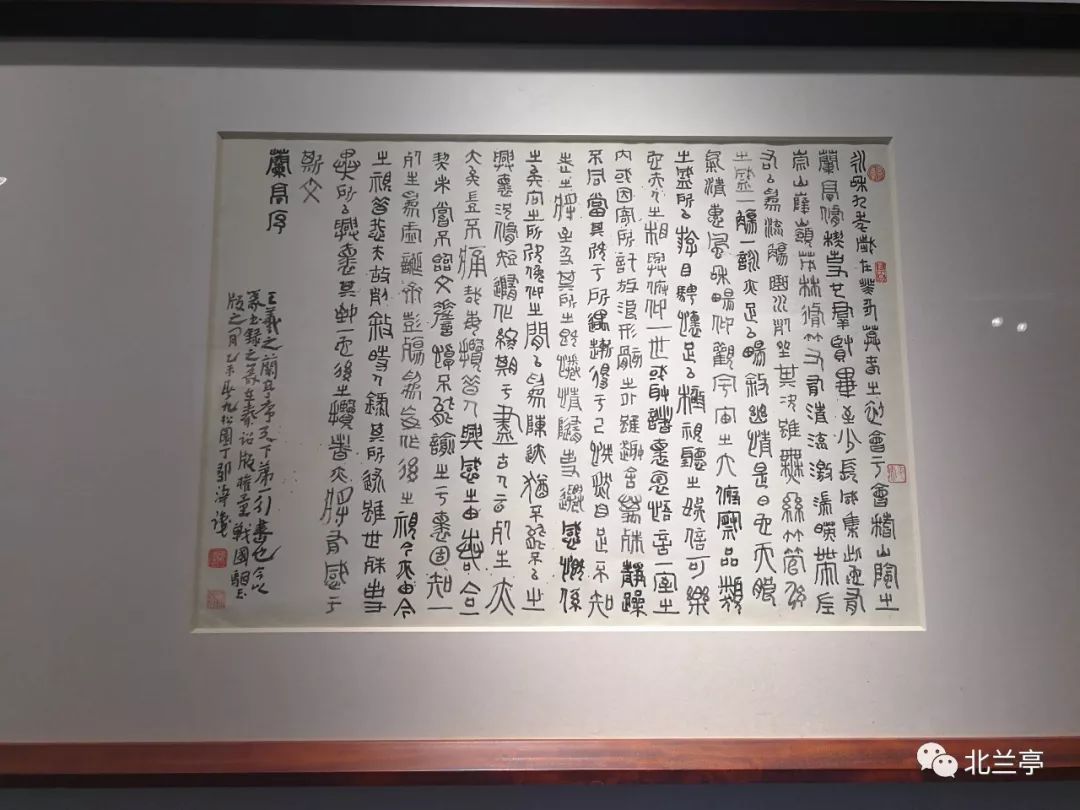 永和九年歲在癸丑莫春之初會于會稽山陰之
蘭亭脩稧事也群賢畢至少長咸集此地有
崇山峻嶺茂林脩竹又有清流激湍暎帶左
右以為流觴曲水列坐其次雖無絲竹管弦
之盛一觴一詠亦足以暢敘幽情是日也天朗
氣清惠風和暢仰觀宇宙之大俯察品類
之盛所以遊目騁懷足以極視聽之娛信可樂
也夫人之相與俯仰一世或取諸懷抱悟言一室之
內或因寄所託放浪形骸之外雖趣舍萬殊靜躁
不同當其欣于所遇蹔得于己快然自足不知
老之將至及其所之既惓情隨事遷感慨係
之矣向之所欣俛仰之間以為陳迹猶不能不以之
興懷況脩短隨化終期于盡古人云死生亦
大矣豈不痛哉每攬昔人興感之由若合一
契未嘗不臨文嗟悼不能喻之于懷固知一
死生為虛誕齊彭殤為妄作後之視今亦由今
之視昔悲夫故列敘時人錄其所述雖世殊事
異所以興懷其致一也後之攬者亦將有感于
斯文
蘭亭序
王羲之蘭亭序天下第一行書也今以
篆書錄之篆在秦詔版權量戰國銅玉
版之間乙未九松園丁鄒濤識
北兰亭